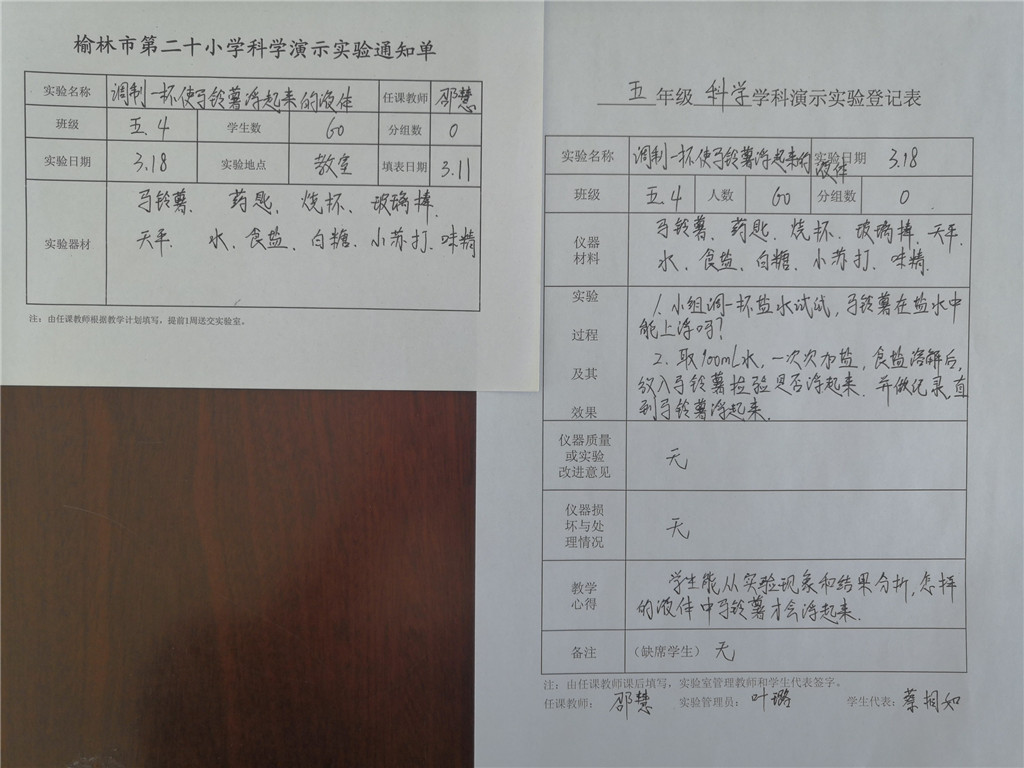 榆林市第二十小学科学演示实验通知单
实验名称 调制一杯使马铃薯浮起来的液体 任课教师 邵慧
班级 五.4 学生数 60 分组数 0
实验日期 3.18 实验地点 教室 填表日期 3.11
实验器材
马铃薯、药匙、烧杯、玻璃棒、
天平、水、食盐、白糖、小苏打、味精
注：由任课教师根据教学计划填写，提前1周送交实验室。
五年级 科学学科演示实验登记表
实验名称 调制一杯使马铃薯浮起来的液体 实验日期 3.18
班级 五.4 人数 60 分组数 0
仪器材料
马铃薯、药匙、烧杯、玻璃棒、天平、
水、食盐、白糖、小苏打、味精.
实验过程及其效果
1.小组调一杯盐水试试，马铃薯在盐水中
能上浮吗？
2.取100mL水，一次次加盐，食盐溶解后，
放入马铃薯检验是否浮起来.并做纪录，直
到马铃薯浮起来.
仪器质量或实验改进意见 无
仪器损坏与处理情况 无
教学心得
学生能从实验现象和结果分析，怎样
的液体中马铃薯才会浮起来.
备注 （缺席学生） 无
注：由任课教师课后填写，实验室管理教师和学生代表签字。
任课教师： 邵慧 实验管理员： 叶璐 学生代表： 蔡桐如